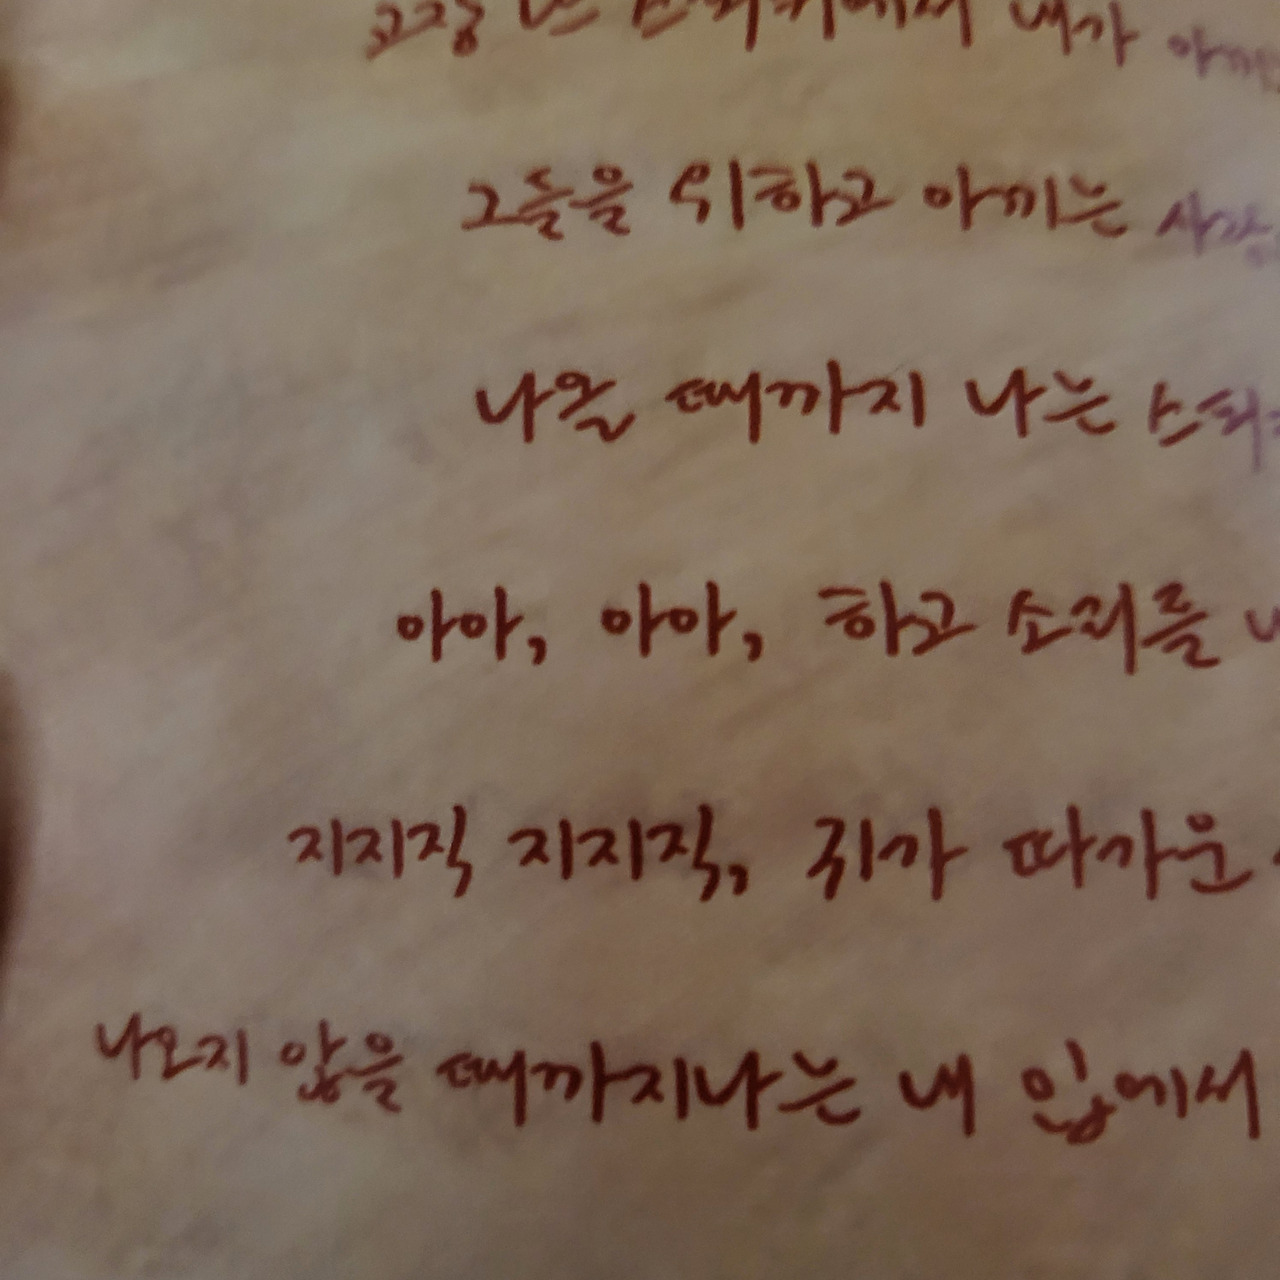 내가
그들을 위하고 아끼는
나올 때까지 나는
아아, 아아, 하고 소리를
지지직 지지직, 귀가 따가운
나오지 않을 때까지나는 내 입에서